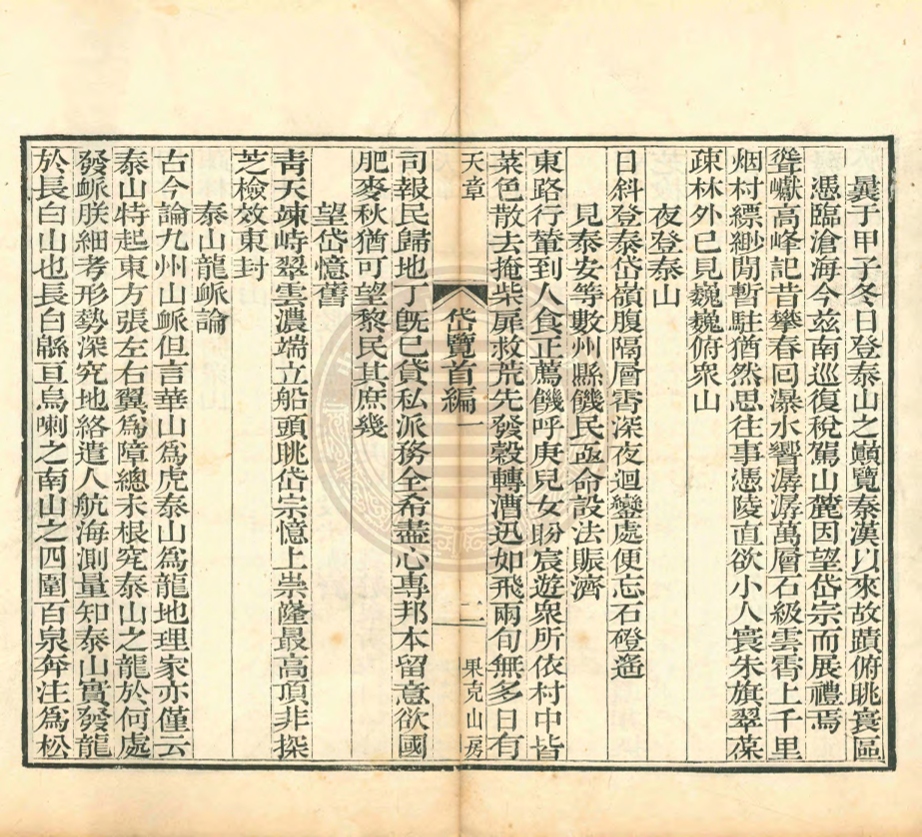 曩于甲子冬日登泰山之巔覽秦漢以來故蹟俯眺寰區
憑臨滄海今茲南巡復稅駕山麓因望岱宗而展禮焉
聳巘高峰記昔攀春回瀑水響潺潺萬層石級雲霄上千里
烟村縹緲閒暫駐猶然思往事憑陵直欲小人寰朱旗翠葆
疎林外已見巍巍俯衆山
夜登泰山
日斜登泰岱嶺腹隔層霄深夜迴鑾處便忘石磴遙
見泰安等數州縣饑民亟命設法賑濟
東路行輦到人食正薦饑呼庚兒女盼宸遊衆所依村中皆
菜色散去掩柴扉救荒先發穀轉漕迅如飛兩旬無多日有
天章
岱覽首編一
二
果克山房
司報民歸地丁旣已貸私派務全希盡心專邦本留意欲國
肥麥秋猶可望黎民其庶幾
望岱憶舊
靑天竦峙翠雲濃端立船頭眺岱宗憶上崇隆最高頂非探
芝檢效東封
泰山龍脈論
古今論九州山脈但言華山爲虎泰山爲龍地理家亦僅云
泰山特起東方張左右翼爲障總未根究泰山之龍於何處
發脈朕細考形勢深究地絡遣人航海測量知泰山實發龍
於長白山也長白緜亘烏喇之南山之四圍百泉奔注爲松